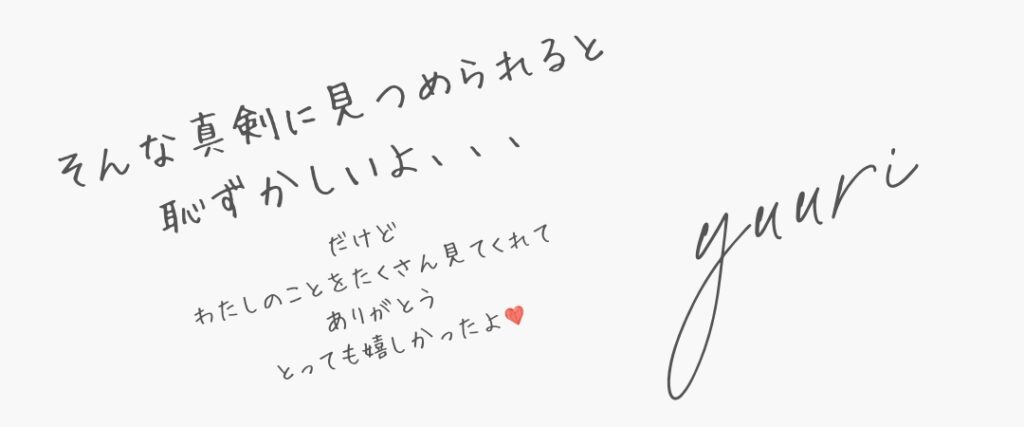 そんな真剣に見つめられると
恥ずかしいよ、、、
だけど
わたしのことをたくさん見てくれて
ありがとう
とっても嬉しかったよ❤
yuuri